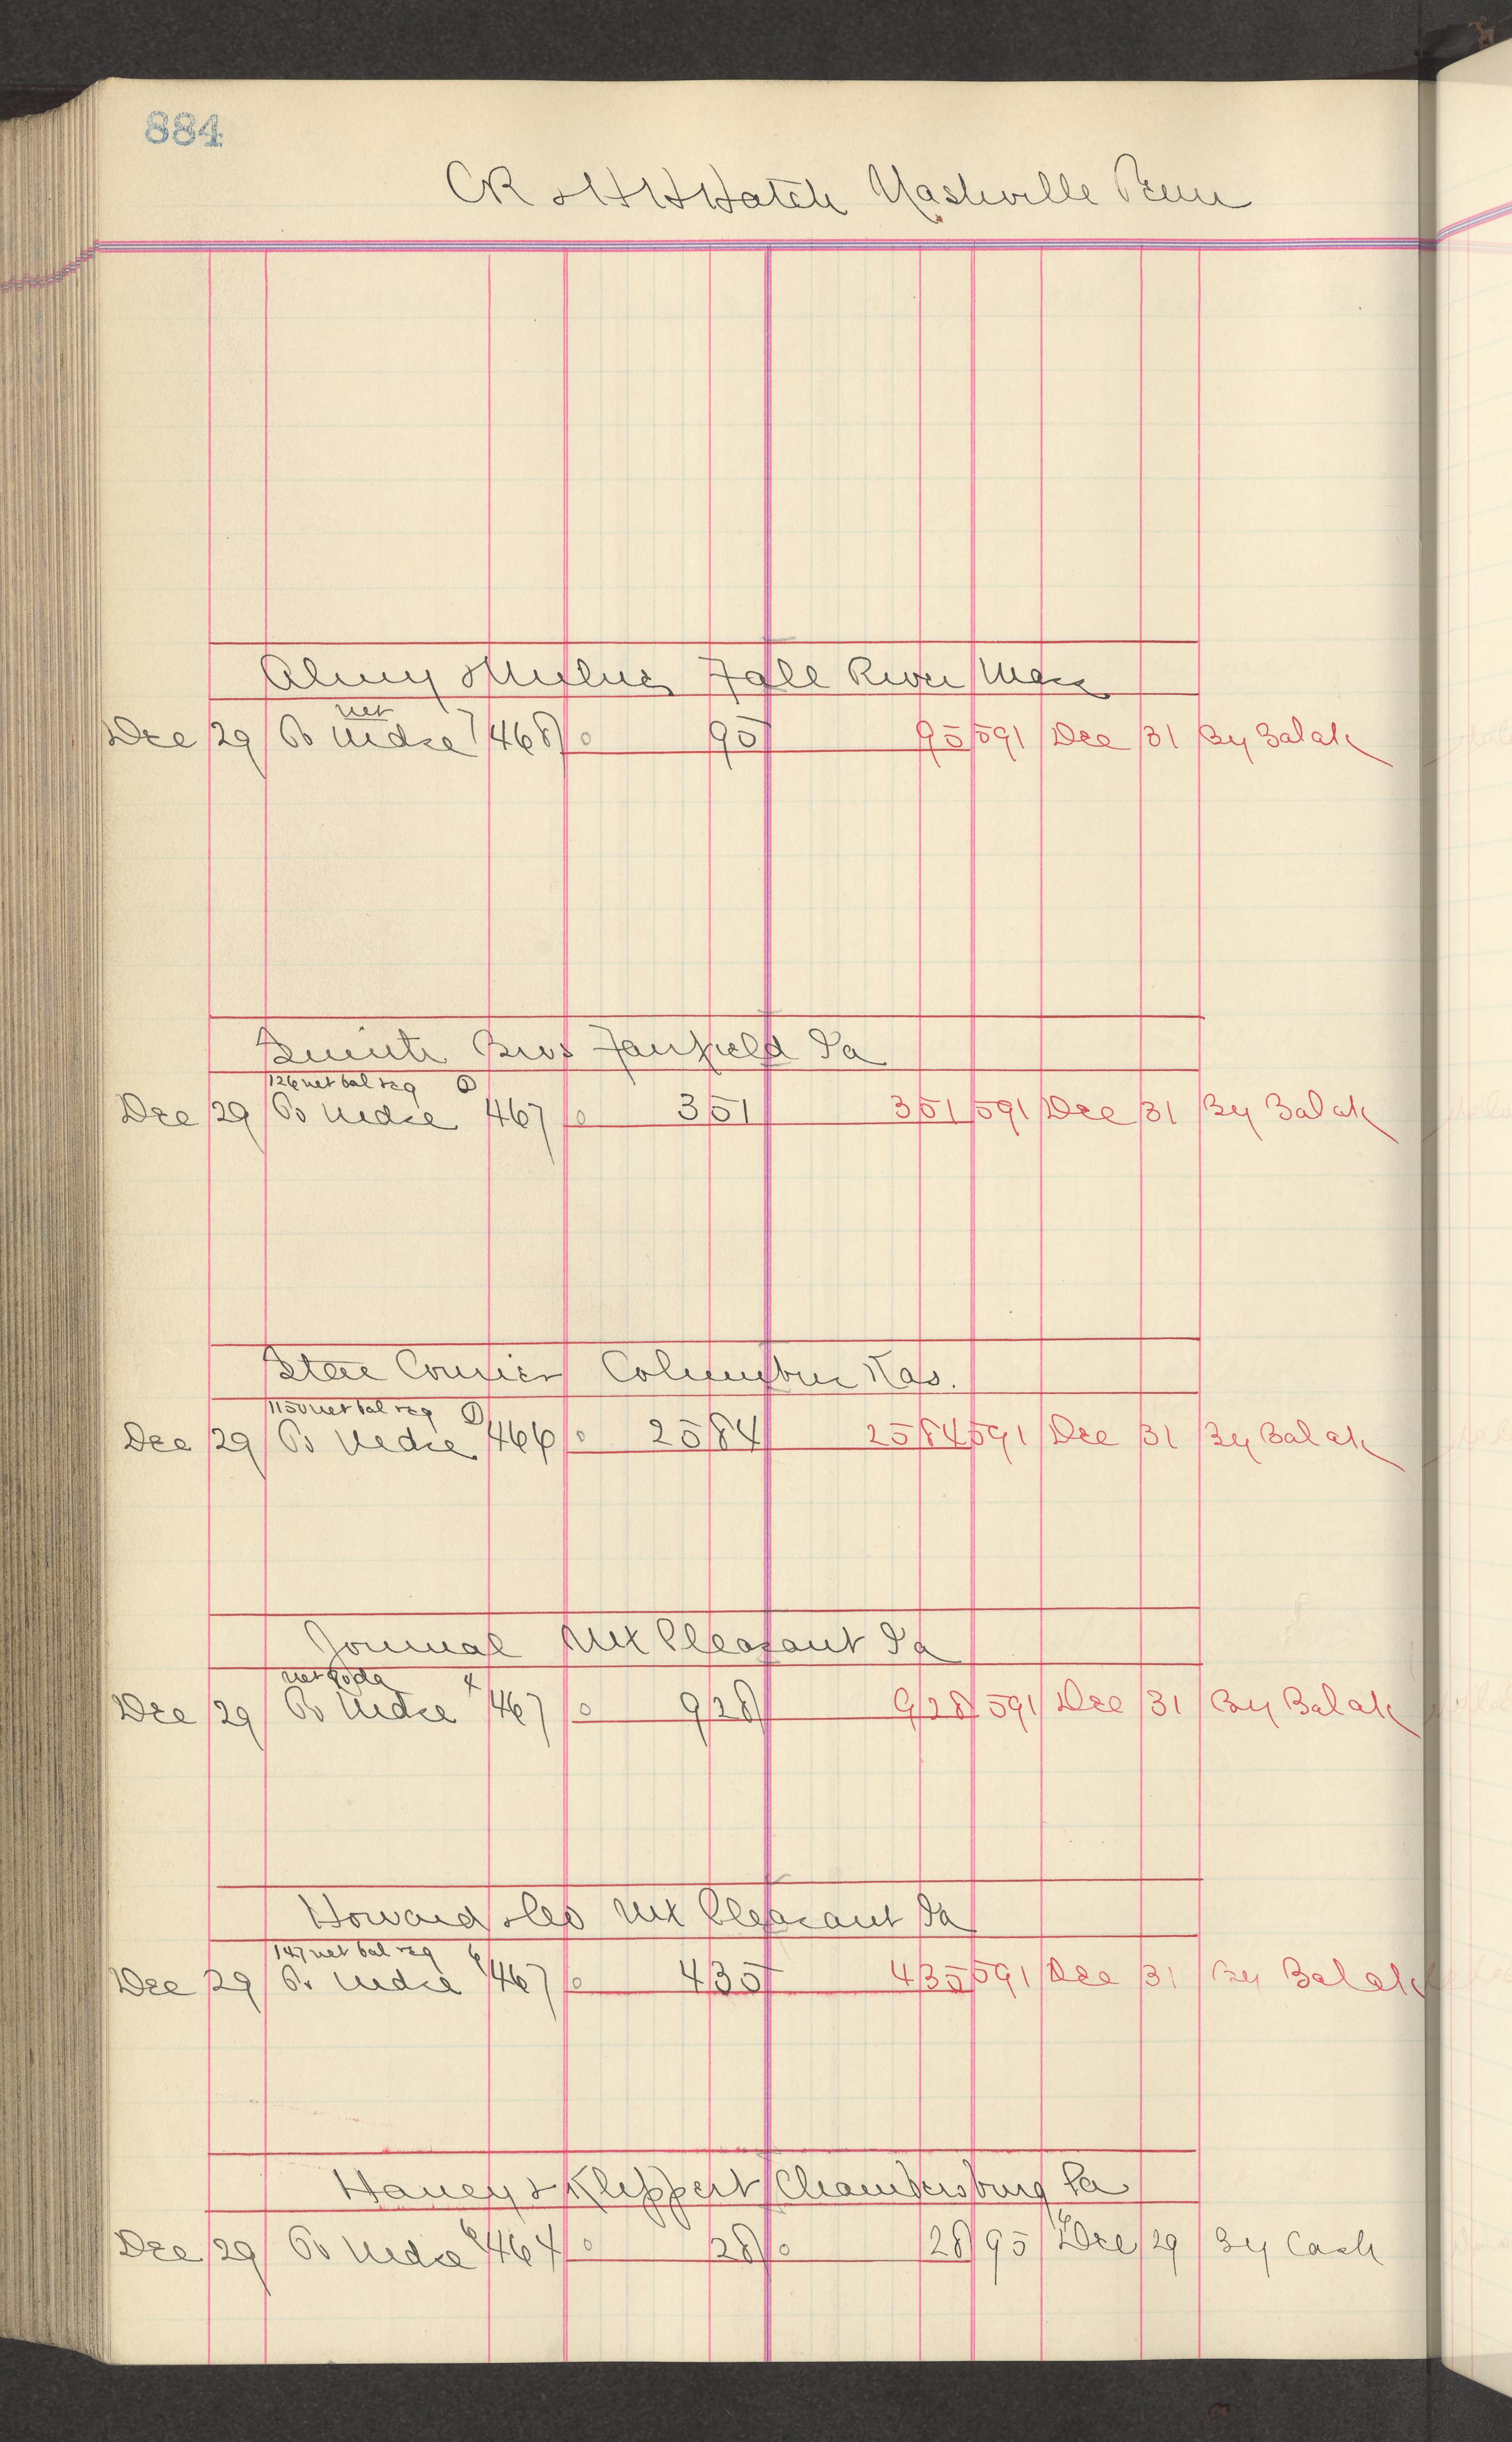 884
CR & H H Hatch Nashville Tenn
Almy & Milne Fall River Mass
net
Dec 29 To Mdse 7 468 0 95 95 591 Dec 31 By Balak
Smith Bros Fairfield Ia
126 net bal reg
Dec 29 To Mdse 467 0 3 51 3 51 591 Dec 31 By Balak
Star Courier Columbus Kas.
1150 net bal reg
Dec 29 To Mdse 466 0 25 84 25 84 591 Dec 31 By Balak
Journal Mt Pleasant Ia
net 90 da
Dec 29 To Mdse 467 0 9 28 9 28 591 Dec 31 By Balak
Howard & Co Mt Pleasant Ia
147 net bal reg 6
Dec 29 To Mdse 467 0 4 35 4 35 591 Dec 31 By Balak
Haney & Klippert Chambersburg Pa
Dec 29 To Mdse 6 464 0 28 0 28 95 Dec 29 By Cash